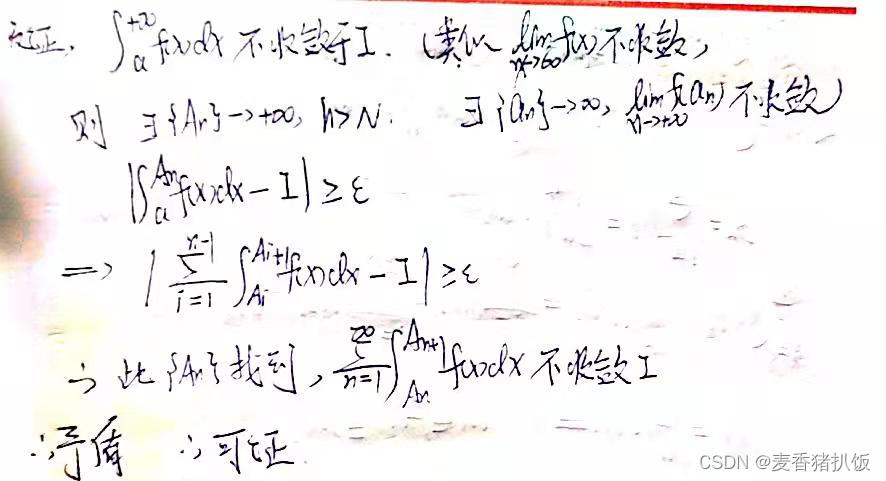 反证, ∫_a^{+∞} f(x)dx 不收敛于I. (类似 lim_{x→∞} f(x) 不收敛,
则 ∃{An}→+∞, n>N. ∃{an}→∞, lim_{n→+∞} f(an) 不收敛)
|∫_a^{An} f(x)dx - I| ≥ ε
⇒ |∑_{i=1}^{n-1} ∫_{Ai}^{Ai+1} f(x)dx - I| ≥ ε
∴ 此{An}找到, ∑_{n=1}^{∞} ∫_{An}^{An+1} f(x)dx 不收敛I
∴矛盾 ∴可证
CSDN @麦香猪扒饭